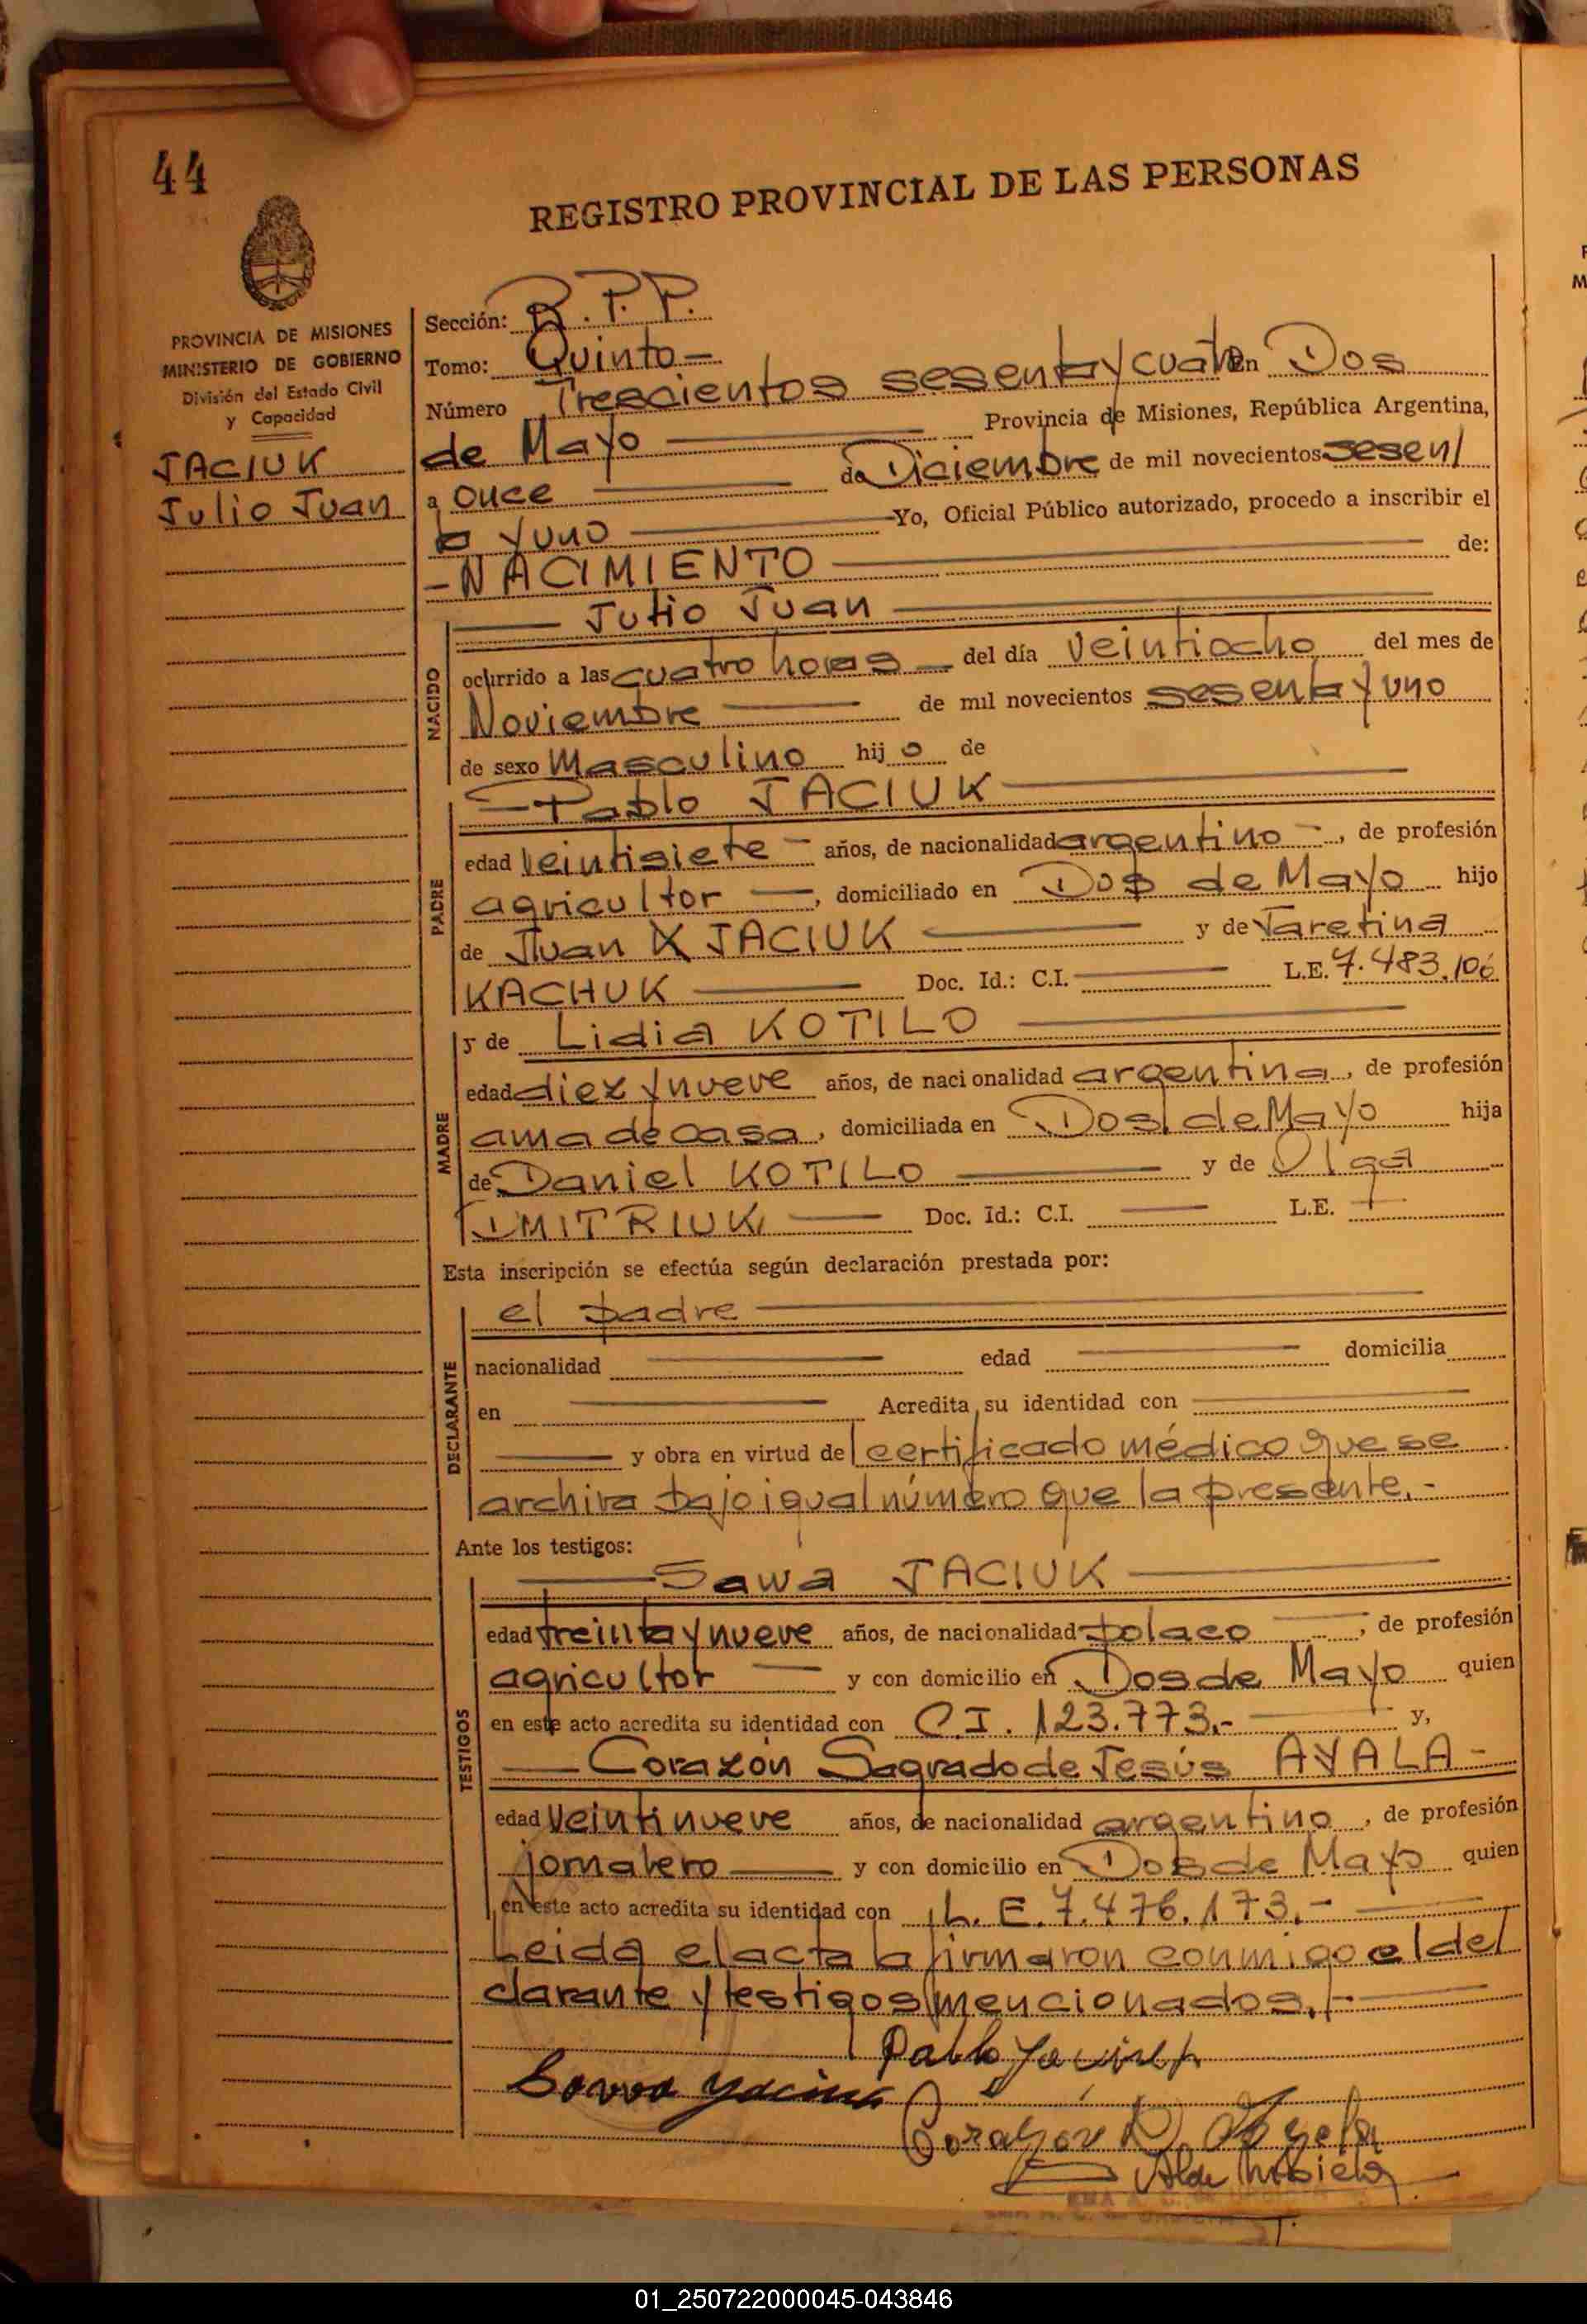 44
REGISTRO PROVINCIAL DE LAS PERSONAS
PROVINCIA DE MISIONES
MINISTERIO DE GOBIERNO
División del Estado Civil
y Capacidad
JACIUK
Julio Juan
Sección: R.P.P.
Tomo: Quinto -
Número Trescientos sesenta y cuatro En Dos
de Mayo Provincia de Misiones, República Argentina,
a once de Diciembre de mil novecientos sesen/
ta y uno Yo, Oficial Público autorizado, procedo a inscribir el
- NACIMIENTO de:
NACIDO
Julio Juan
ocurrido a las cuatro horas del día veintiocho del mes de
Noviembre de mil novecientos sesenta y uno
de sexo Masculino hijo de
PADRE
Pablo JACIUK
edad veintisiete años, de nacionalidad argentino, de profesión
agricultor, domiciliado en Dos de Mayo hijo
de Juan JACIUK y de Taretina
KACHUK Doc. Id.: C.I. L.E. 7.483.106
MADRE
y de Lidia KOTILO
edad diez y nueve años, de nacionalidad argentina, de profesión
ama de casa, domiciliada en Dos de Mayo hija
de Daniel KOTILO y de Olga
DMITRIUK Doc. Id.: C.I. L.E.
Esta inscripción se efectúa según declaración prestada por:
DECLARANTE
el padre
nacionalidad edad domicilia
en Acredita su identidad con
y obra en virtud de certificado médico que se
archiva bajo igual número que la presente.-
Ante los testigos:
TESTIGOS
Sawa JACIUK
edad treinta y nueve años, de nacionalidad polaco, de profesión
agricultor y con domicilio en Dos de Mayo quien
en este acto acredita su identidad con C.I. 123.773.- y,
Corazón Sagrado de Jesús AYALA -
edad veintinueve años, de nacionalidad argentino, de profesión
jornalero y con domicilio en Dos de Mayo quien
en este acto acredita su identidad con L.E. 7.476.173.-
Leida el acta la firmaron conmigo el de/
clarante y testigos mencionados.-
Pablo
Corazón
01_250722000045-043846